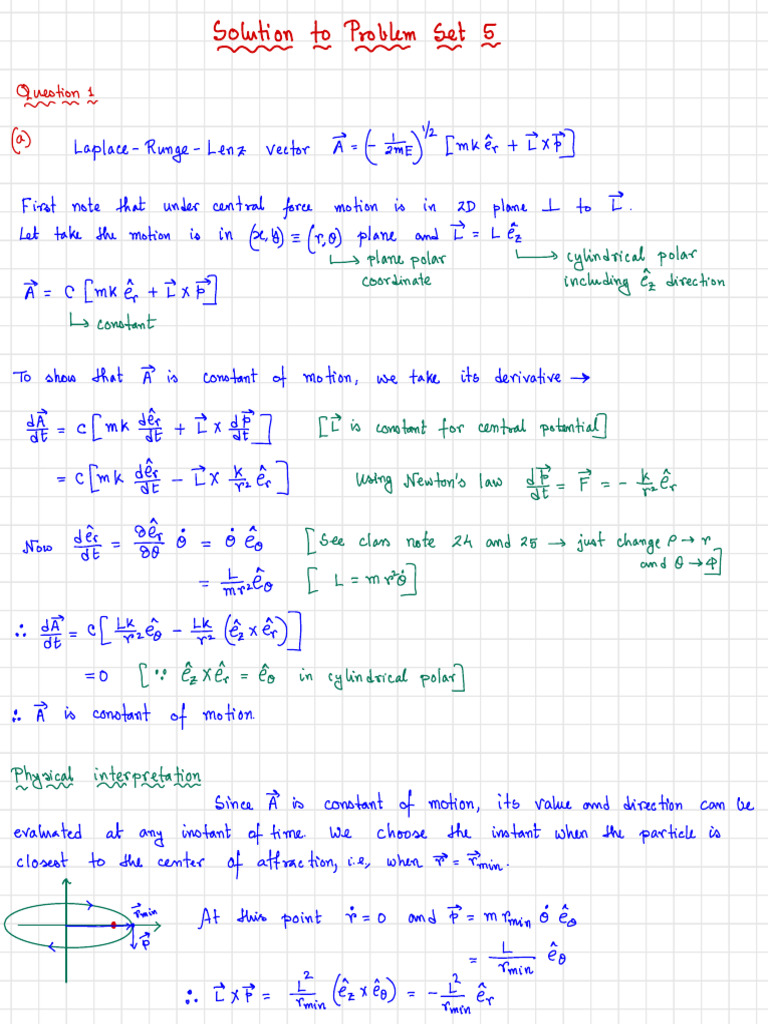 Solution to Problem Set 5
Question 1
(a) Laplace-Runge-Lenz vector $\vec{A} = \left(-\frac{1}{2mE}\right)^{1/2} [mk\hat{e}_r + \vec{L} \times \vec{P}]$
First note that under central force motion is in 2D plane ⊥ to $\vec{L}$.
Let take the motion is in (x,y) ≡ (r,θ) plane and $\vec{L} = L\hat{e}_z$
↳ plane polar coordinate
↳ cylindrical polar including $\hat{e}_z$ direction
$\vec{A} = C[mk\hat{e}_r + \vec{L} \times \vec{P}]$
↳ constant
To show that $\vec{A}$ is constant of motion, we take its derivative →
$\frac{d\vec{A}}{dt} = C\left[mk\frac{d\hat{e}_r}{dt} + \vec{L} \times \frac{d\vec{P}}{dt}\right]$ [$\vec{L}$ is constant for central potential]
$= C\left[mk\frac{d\hat{e}_r}{dt} - \vec{L} \times \frac{k}{r^2}\hat{e}_r\right]$ Using Newton's law $\frac{d\vec{P}}{dt} = \vec{F} = -\frac{k}{r^2}\hat{e}_r$
Now $\frac{d\hat{e}_r}{dt} = \frac{\partial\hat{e}_r}{\partial\theta}\dot{\theta} = \dot{\theta}\hat{e}_\theta$ [See class note 24 and 25 → just change ρ→r and θ→φ]
$= \frac{L}{mr^2}\hat{e}_\theta$ [L = mr²$\dot{\theta}$]
∴ $\frac{d\vec{A}}{dt} = C\left[\frac{Lk}{r^2}\hat{e}_\theta - \frac{Lk}{r^2}(\hat{e}_z \times \hat{e}_r)\right]$
= 0 [∵ $\hat{e}_z \times \hat{e}_r = \hat{e}_\theta$ in cylindrical polar]
∴ $\vec{A}$ is constant of motion.
Physical interpretation
Since $\vec{A}$ is constant of motion, its value and direction can be
evaluated at any instant of time. We choose the instant when the particle is
closest to the center of attraction, i.e, when $\vec{r} = \vec{r}_{min}$.
$\vec{r}_{min}$
$\vec{P}$
At this point $\dot{r} = 0$ and $\vec{P} = mr_{min}\dot{\theta}\hat{e}_\theta$
$= \frac{L}{r_{min}}\hat{e}_\theta$
∴ $\vec{L} \times \vec{P} = \frac{L^2}{r_{min}}(\hat{e}_z \times \hat{e}_\theta) = -\frac{L^2}{r_{min}}\hat{e}_r$